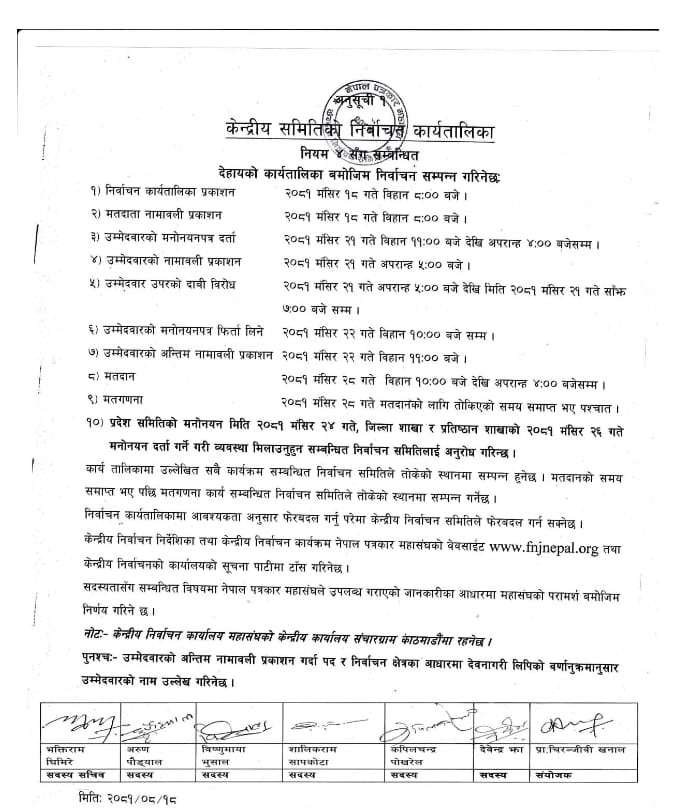 अनुसूची १
केन्द्रीय समितिको निर्बाचन कार्यतालिका
नियम ४ सँग सम्बन्धित
देहायको कार्यतालिका बमोजिम निर्वाचन सम्पन्न गरिनेछ:
१) निर्वाचन कार्यतालिका प्रकाशन २०८१ मंसिर १८ गते विहान ८:०० बजे ।
२) मतदाता नामावली प्रकाशन २०८१ मंसिर १८ गते विहान ८:०० बजे ।
३) उम्मेदवारको मनोनयनपत्र दर्ता २०८१ मंसिर २१ गते विहान ११:०० बजे देखि अपरान्ह ४:०० बजेसम्म ।
४) उम्मेदवारको नामावली प्रकाशन २०८१ मंसिर २१ गते अपरान्ह ५:०० बजे ।
५) उम्मेदवार उपरको दावी विरोध २०८१ मंसिर २१ गते अपरान्ह ५:०० बजे देखि मिति २०८१ मंसिर २१ गते साँझ
७:०० बजे सम्म ।
६) उम्मेदवारको मनोनयनपत्र फिर्ता लिने २०८१ मंसिर २२ गते विहान १०:०० बजे सम्म ।
७) उम्मेदवारको अन्तिम नामावली प्रकाशन २०८१ मंसिर २२ गते विहान ११:०० बजे ।
८) मतदान २०८१ मंसिर २८ गते विहान १०:०० बजे देखि अपरान्ह ४:०० बजेसम्म ।
९) मतगणना २०८१ मंसिर २८ गते मतदानको लागि तोकिएको समय समाप्त भए पश्चात ।
१०) प्रदेश समितिको मनोनयन मिति २०८१ मंसिर २४ गते, जिल्ला शाखा र प्रतिष्ठान शाखाको २०८१ मंसिर २६ गते
मनोनयन दर्ता गर्ने गरी व्यवस्था मिलाउनुहुन सम्बन्धित निर्वाचन समितिलाई अनुरोध गरिन्छ ।
कार्य तालिकामा उल्लेखित सबै कार्यक्रम सम्बन्धित निर्वाचन समितिले तोकेको स्थानमा सम्पन्न हुनेछ । मतदानको समय
समाप्त भए पछि मतगणना कार्य सम्बन्धित निर्वाचन समितिले तोकेको स्थानमा सम्पन्न गर्नेछ ।
निर्वाचन कार्यतालिकामा आवश्यकता अनुसार फेरबदल गर्नु परेमा केन्द्रीय निर्वाचन समितिले फेरबदल गर्न सक्नेछ ।
केन्द्रीय निर्वाचन निर्देशिका तथा केन्द्रीय निर्वाचन कार्यक्रम नेपाल पत्रकार महासंघको वेवसाईट www.fnjnepal.org तथा
केन्द्रीय निर्वाचनको कार्यालयको सूचना पाटीमा टाँस गरिनेछ ।
सदस्यतासँग सम्बन्धित विषयमा नेपाल पत्रकार महासंघले उपलब्ध गराएको जानकारीका आधारमा महासंघको परामर्श बमोजिम
निर्णय गरिने छ ।
नोटः- केन्द्रीय निर्वाचन कार्यालय महासंघको केन्द्रीय कार्यालय संचारग्राम काठमाडौंमा रहनेछ ।
पुनश्चः- उम्मेदवारको अन्तिम नामावली प्रकाशन गर्दा पद र निर्वाचन क्षेत्रका आधारमा देवनागरी लिपिको वर्णानुक्रमानुसार
उम्मेदवारको नाम उल्लेख गरिनेछ ।
भक्तिराम अरुण विष्णुमाया शालिकराम कपिलचन्द्र देवेन्द्र झा प्रा.चिरञ्जीवी खनाल
घिमिरे पौड्याल भुसाल सापकोटा पोखरेल
सदस्य सचिव सदस्य सदस्य सदस्य सदस्य सदस्य संयोजक
मितिः २०८१/०८/१८